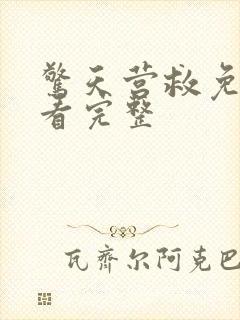 驚天营救免
看完整
瓦齊尔阿克巴